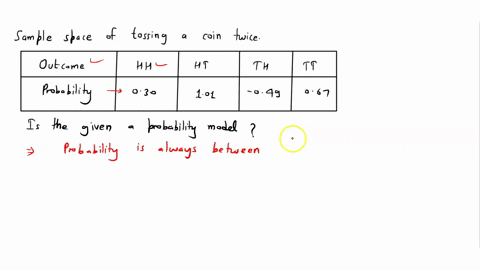 Sample space of tossing a coin twice.
Outcome HH HT TH TT
Probability → 0.30 1.01 -0.49 0.67
Is the given a probability model ?
⇒ Probability is always between